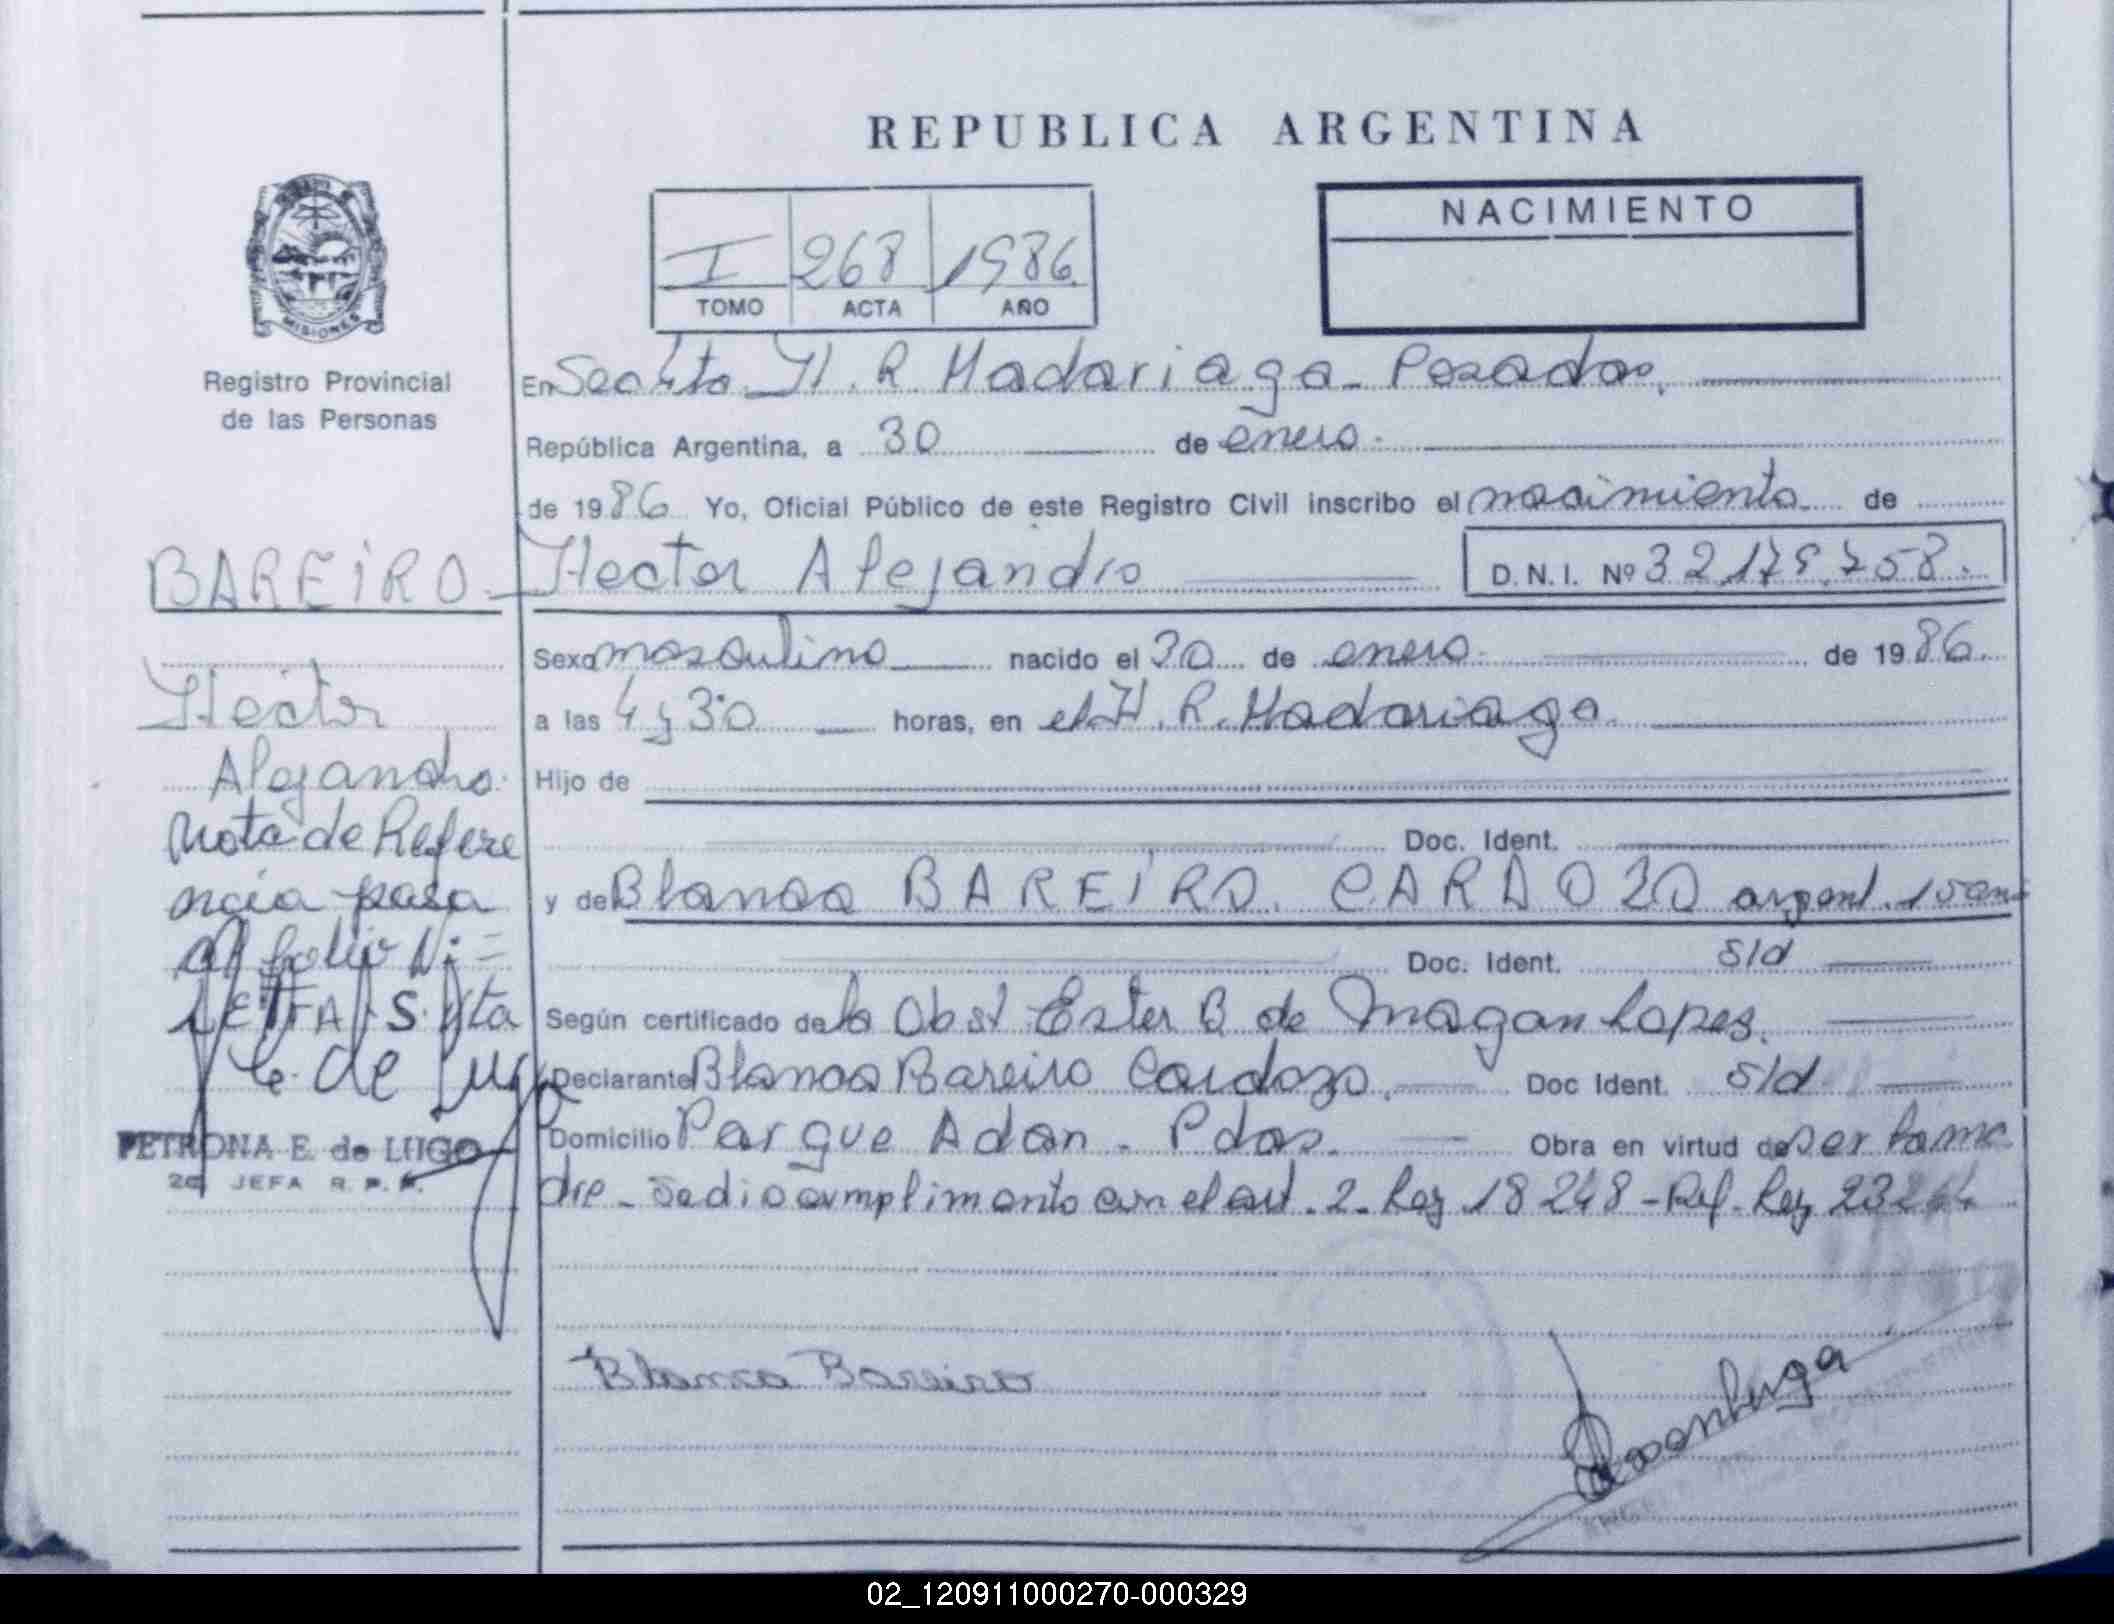 REPUBLICA ARGENTINA
NACIMIENTO
I 268 1986
TOMO ACTA AÑO
MISIONES
Registro Provincial
de las Personas
En Secc 4ta. H. R. Madariaga - Posadas,
República Argentina, a 30 de enero
de 1986 Yo, Oficial Público de este Registro Civil inscribo el nacimiento de
BAREIRO - Hector Alejandro D.N.I. Nº 32.179.758.
Sexo masculino nacido el 30 de enero de 1986.
a las 4 y 30 horas, en el H. R. Madariaga.
Hijo de
Doc. Ident.
y de Blanca BAREIRO. CARDOZO argent. 15 an
Doc. Ident. s/d
Según certificado de la Obst Ester B de Magan Lopes.
Declarante Blanca Bareiro Cardozo. Doc Ident. s/d
Domicilio Parque Adan - Pdas. Obra en virtud de ser la ma
dre - Se dio cumplimento con el art. 2 - Ley 18248 - Ref. Ley 23264
Blanca Bareiro
Hector
Alejandro.
Nota de Refere
ncia pasa
al folio Nº =
JEFA S. 4ta
E. de Lugo
PETRONA E. de LUGO
JEFA R. P. P.
02_120911000270-000329